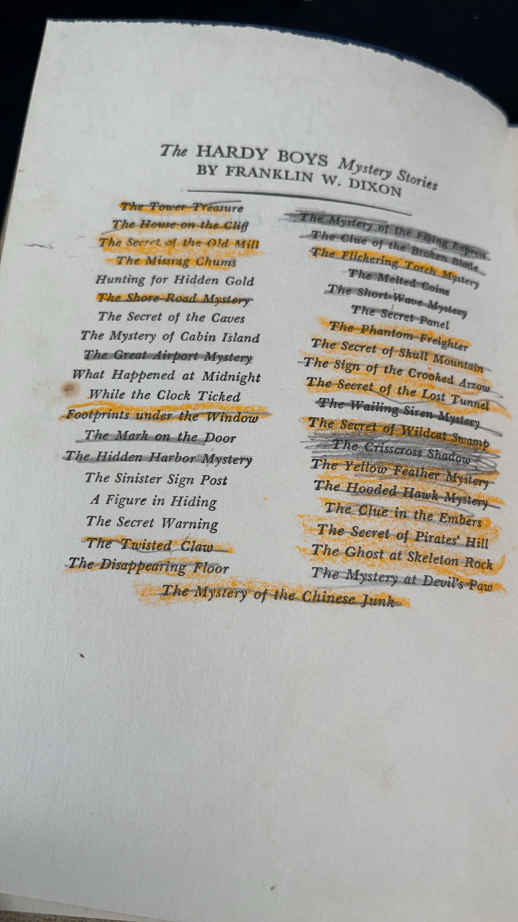 The HARDY BOYS Mystery Stories
BY FRANKLIN W. DIXON
The Tower Treasure
The House on the Cliff
The Secret of the Old Mill
The Missing Chums
Hunting for Hidden Gold
The Shore Road Mystery
The Secret of the Caves
The Mystery of Cabin Island
The Great Airport Mystery
What Happened at Midnight
While the Clock Ticked
Footprints under the Window
The Mark on the Door
The Hidden Harbor Mystery
The Sinister Sign Post
A Figure in Hiding
The Secret Warning
The Twisted Claw
The Disappearing Floor
The Mystery of the Flying Express
The Clue of the Broken Blade
The Flickering Torch Mystery
The Melted Coins
The Short-Wave Mystery
The Secret Panel
The Phantom Freighter
The Secret of Skull Mountain
The Sign of the Crooked Arrow
The Secret of the Lost Tunnel
The Wailing Siren Mystery
The Secret of Wildcat Swamp
The Crisscross Shadow
The Yellow Feather Mystery
The Hooded Hawk Mystery
The Clue in the Embers
The Secret of Pirates' Hill
The Ghost at Skeleton Rock
The Mystery at Devil's Paw
The Mystery of the Chinese Junk